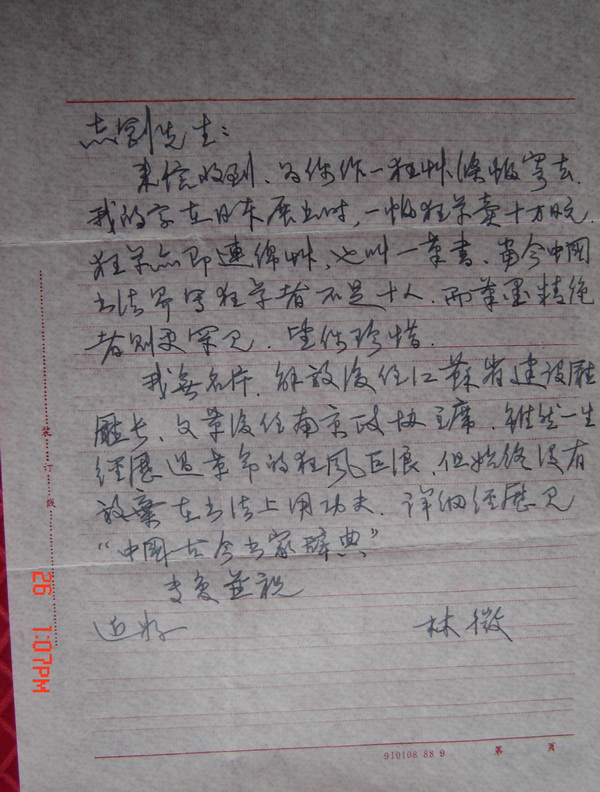 志剑先生：
来信收到、为你作一狂艸条幅寄去.
我的字在日本展出时，一幅狂草卖十万日元.
狂草亦即連绵艸，也叫一筆書、當今中國
书法界写狂草者不足十人.而筆墨精绝
者则更罕见.望你珍惜.
我無名片.解放後任江苏省建设廳
廳长、文革後任南京政协主席.雖然一生
经歷过革命的狂風巨浪、但始终没有
放棄在书法上用功夫.详细经歷见
“中國古今书家辞典”
专复並祝
近好
林徵
装订线
26 1:07PM
910108 88 9 第 页